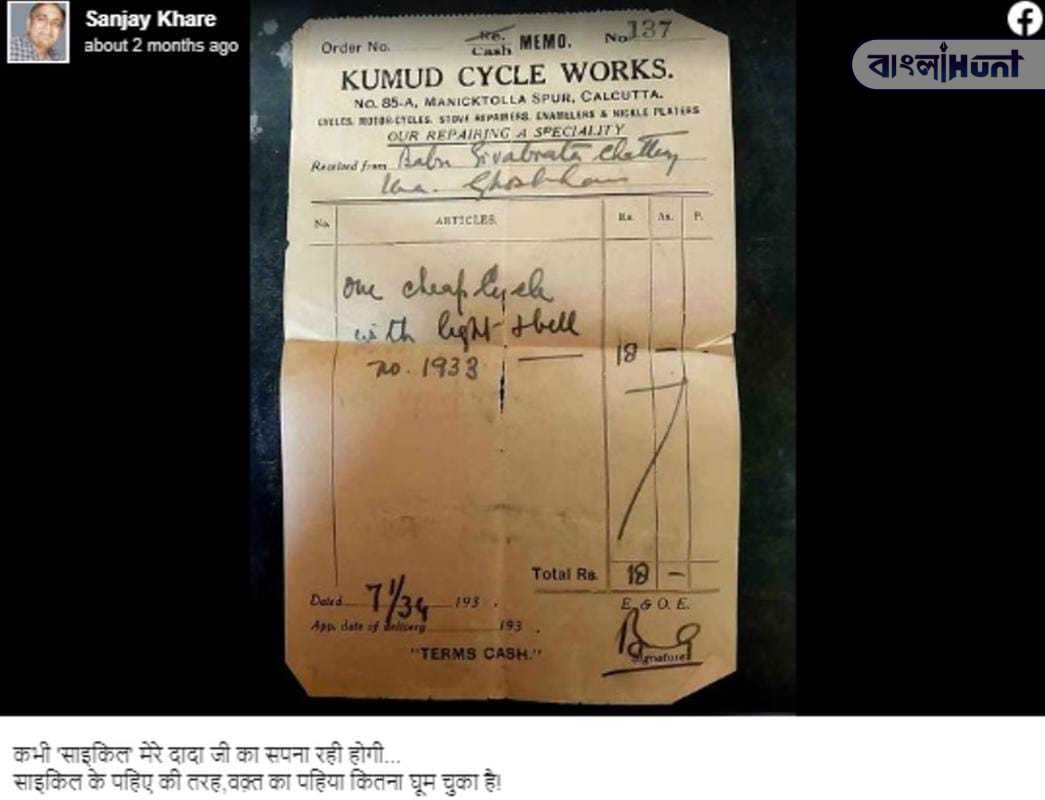 Sanjay Khare
about 2 months ago
বাংলাHunt
Order No.
Re.
Cash MEMO. No 137
KUMUD CYCLE WORKS.
NO. 85-A, MANICKTOLLA SPUR, CALCUTTA.
CYCLES, MOTOR-CYCLES, STOVE REPAIRERS, ENAMELLERS & NICKLE PLATERS
OUR REPAIRING A SPECIALITY
Received from Babu Sivabrata
No. ARTICLES. Rs. As. P.
one cheap Cycle
with light & bell
no. 1933 — 18 —
Total Rs. 18 —
Dated 7/1/34 193 .
E. & O. E.
App. date of delivery 193 .
Signature
"TERMS CASH."
कभी 'साइकिल' मेरे दादा जी का सपना रही होगी...
साइकिल के पहिए की तरह,वक़्त का पहिया कितना घूम चुका है!